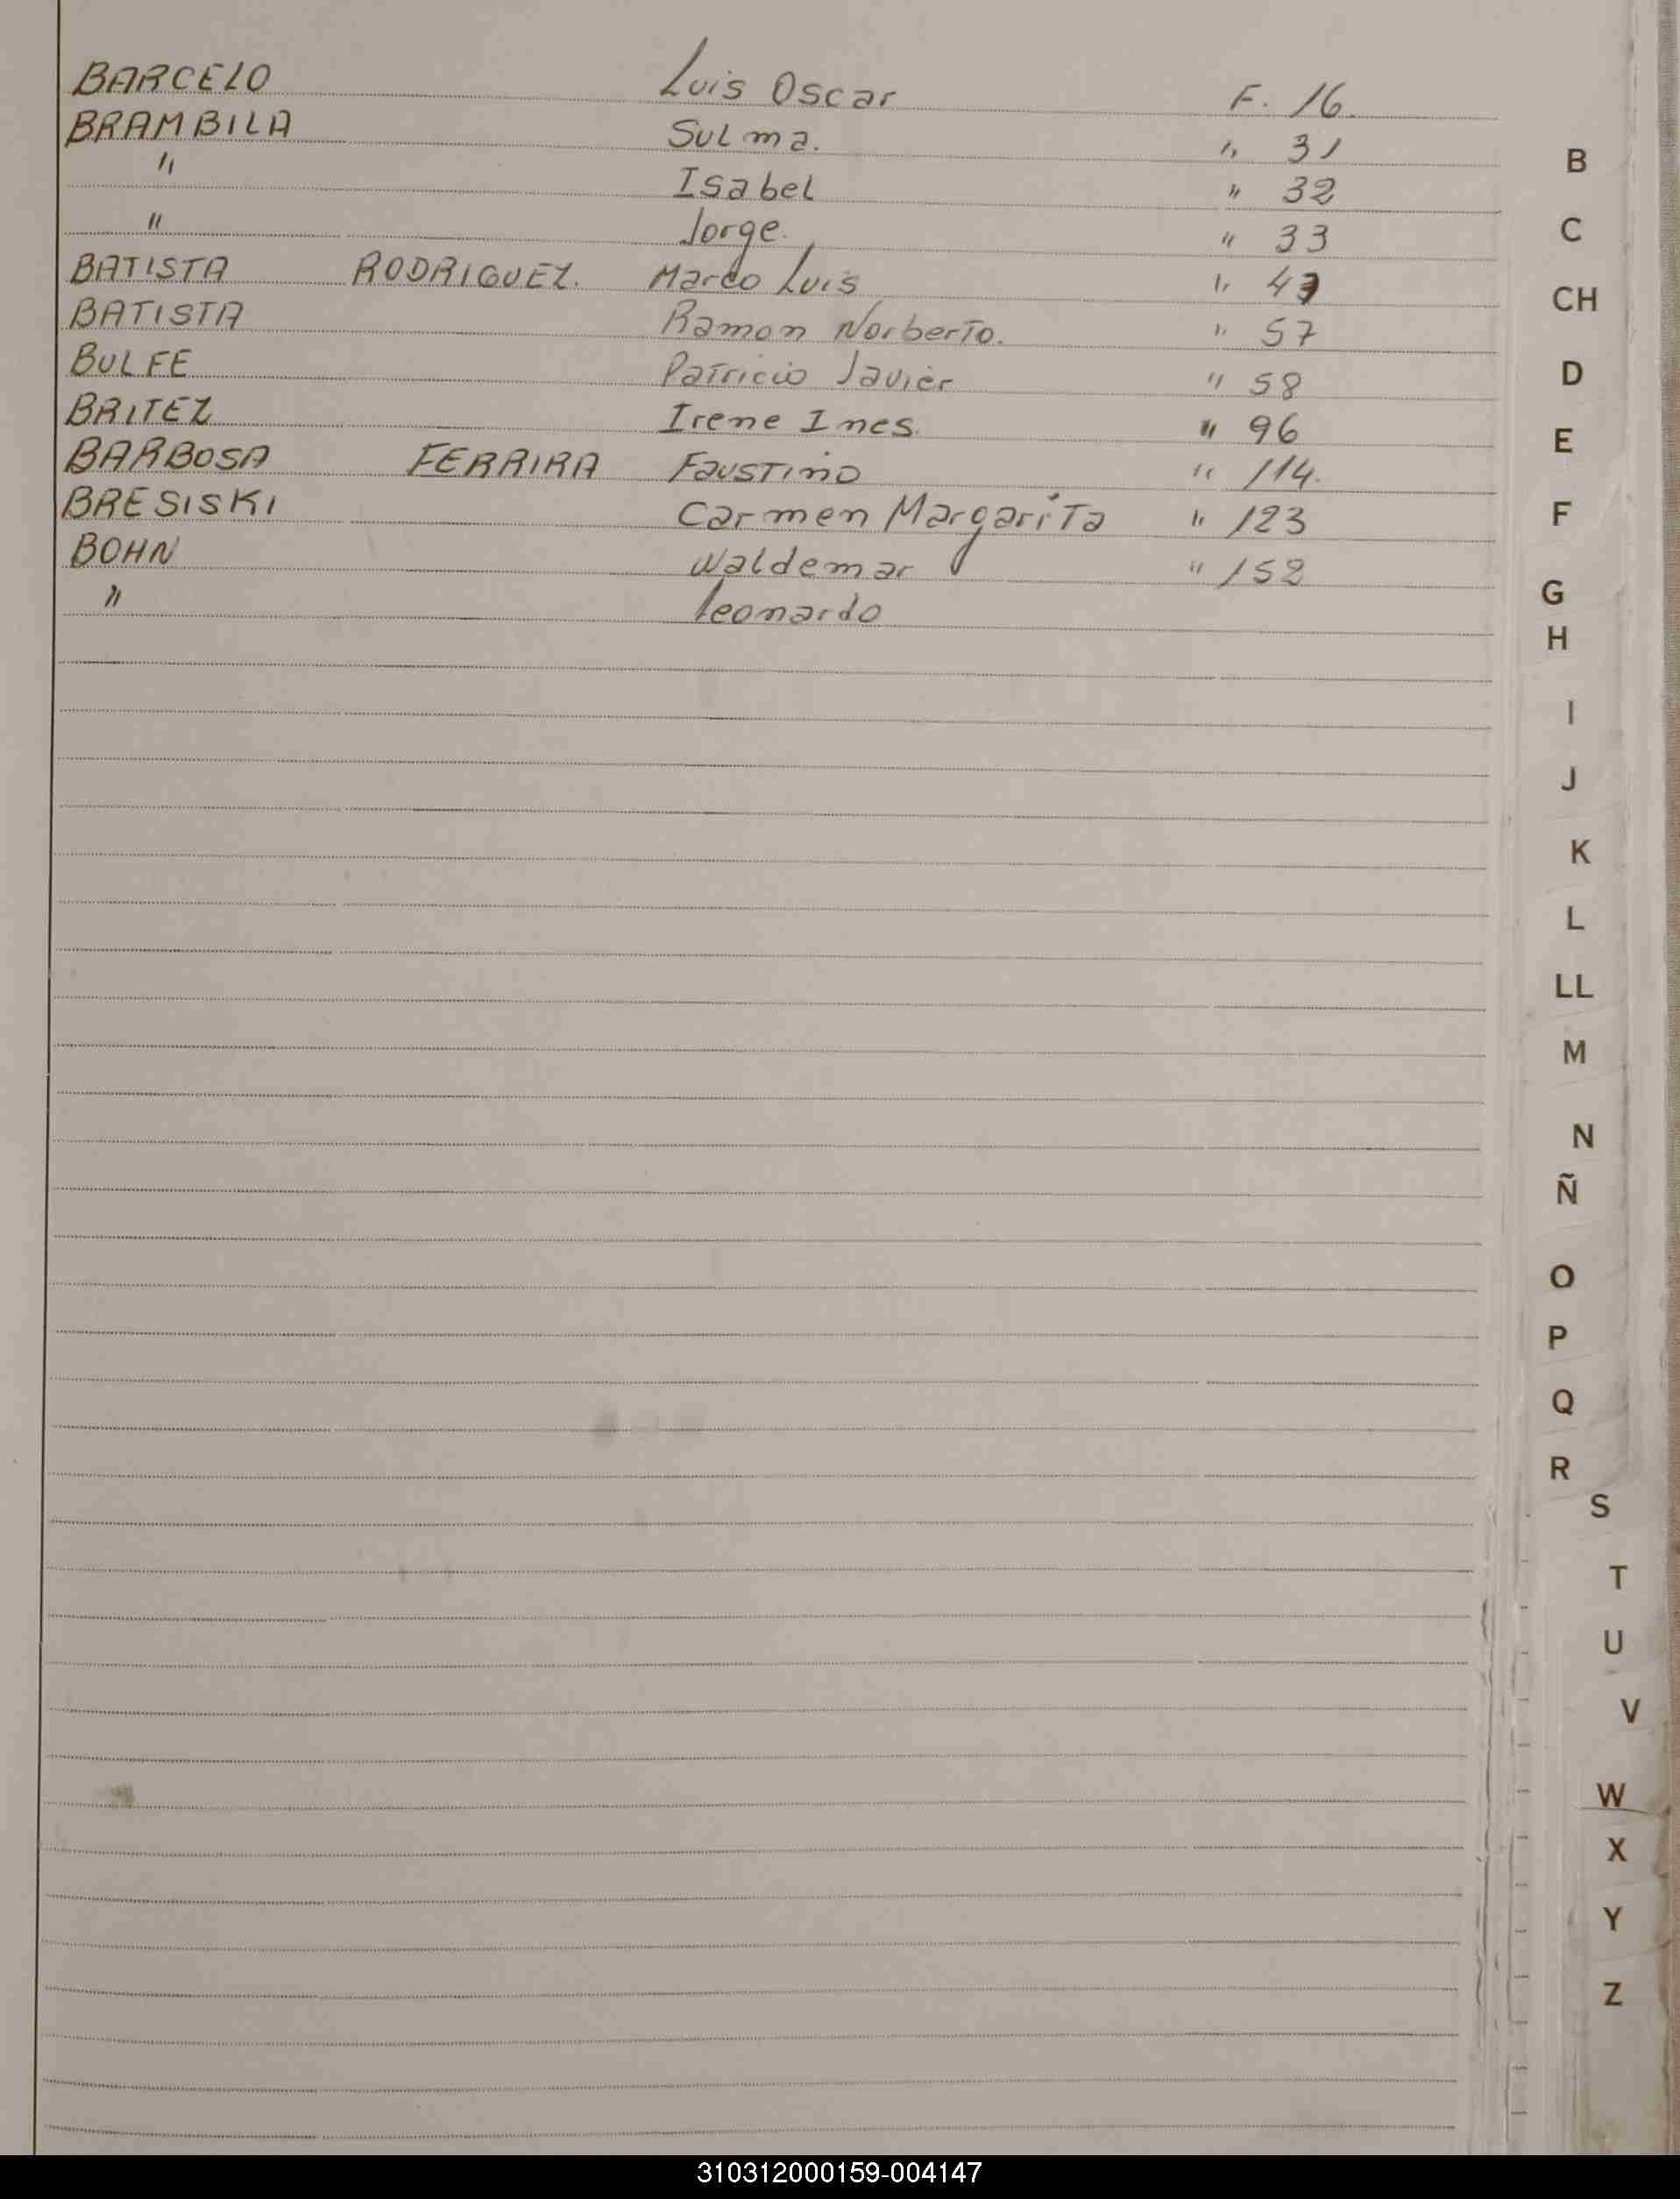 BARCELO Luis Oscar F. 16.
BRAMBILA Sulma. " 31
" Isabel " 32
" Jorge. " 33
BATISTA RODRIGUEZ. Marco Luis "
BATISTA Ramon Norberto. " 57
BULFE Patricio Javier " 58
BRITEZ Irene Ines " 96
BARBOSA FERRIRA Faustino " 114.
BRESISKI Carmen Margarita " 123
BOHN Waldemar " 152
" Leonardo
B
C
CH
D
E
F
G
H
I
J
K
L
LL
M
N
Ñ
O
P
Q
R
S
T
U
V
W
X
Y
Z
310312000159-004147